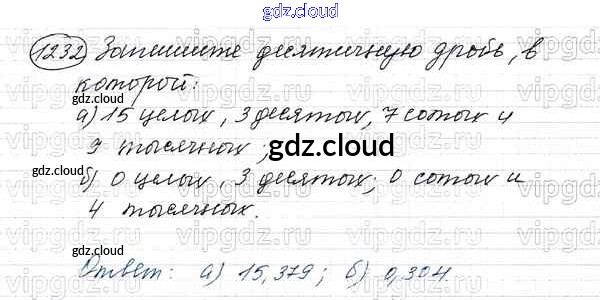 gdz.cloud
1232 Запишите десятичную дробь, в
которой:
а) 15 целых, 3 десятых, 7 сотых и
9 тысячных;
gdz.cloud
gdz.cloud
б) 0 целых, 3 десятых; 0 сотых и
4 тысячных.
gdz.cloud
Ответ: а) 15,379; б) 0,304
vipgdz.ru